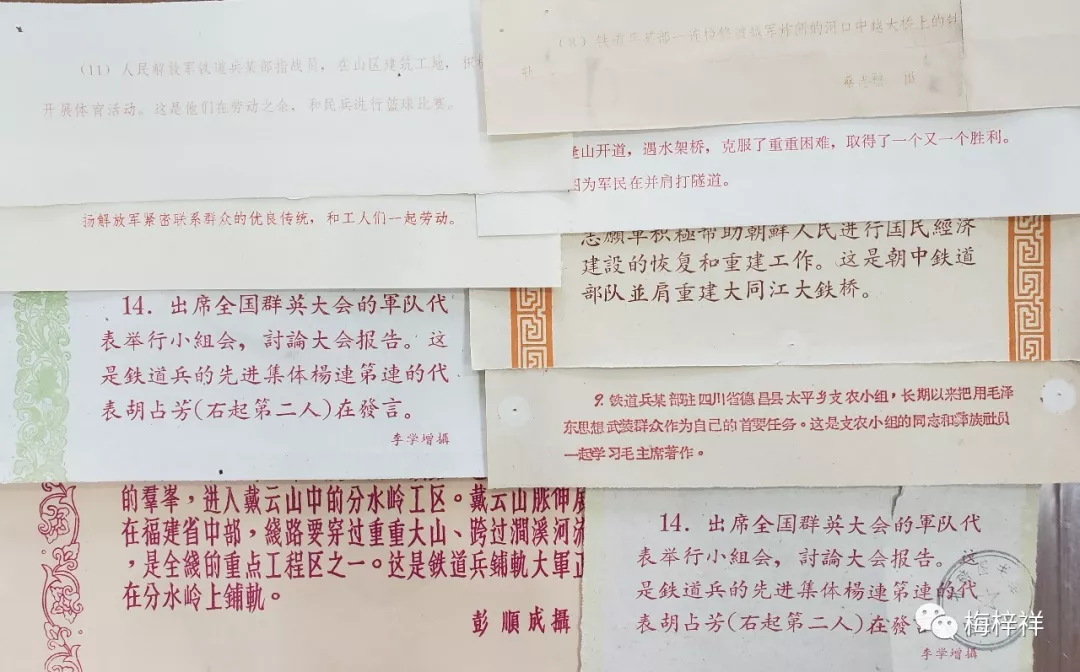 （11）人民解放军铁道兵某部指战员，在山区建筑工地，积
开展体育活动。这是他们在劳动之余，和民兵进行篮球比赛。
（8）铁道兵某部一连抢修被敌军炸断的河口中越大桥上的
摄
山开道，遇水架桥，克服了重重困难，取得了一个又一个胜利。
因为军民在并肩打隧道。
扬解放军紧密联系群众的优良传统，和工人们一起劳动。
志願軍积極帮助朝鮮人民进行国民經济
建設的恢复和重建工作。这是朝中鉄道
部队並肩重建大同江大鉄桥。
14．出席全国群英大会的軍队代
表举行小組会，討論大会报告。这
是鉄道兵的先进集体楊連第連的代
表胡占芳（右起第二人）在發言。
李学增攝
9．铁道兵某部驻四川省德昌县太平乡支农小组，长期以来把用毛泽
东思想武装群众作为自己的首要任务。这是支农小组的同志和彝族社员
一起学习毛主席著作。
的羣峯，进入戴云山中的分水岭工区。戴云山脉伸展
在福建省中部，綫路要穿过重重大山、跨过澗溪河流
，是全綫的重点工程区之一。这是鉄道兵鋪軌大軍正
在分水岭上鋪軌。
彭順成攝
14．出席全国群英大会的軍队代
表举行小組会，討論大会报告。这
是鉄道兵的先进集体楊連第連的代
表胡占芳（右起第二人）在發言
李学增攝
梅梓祥